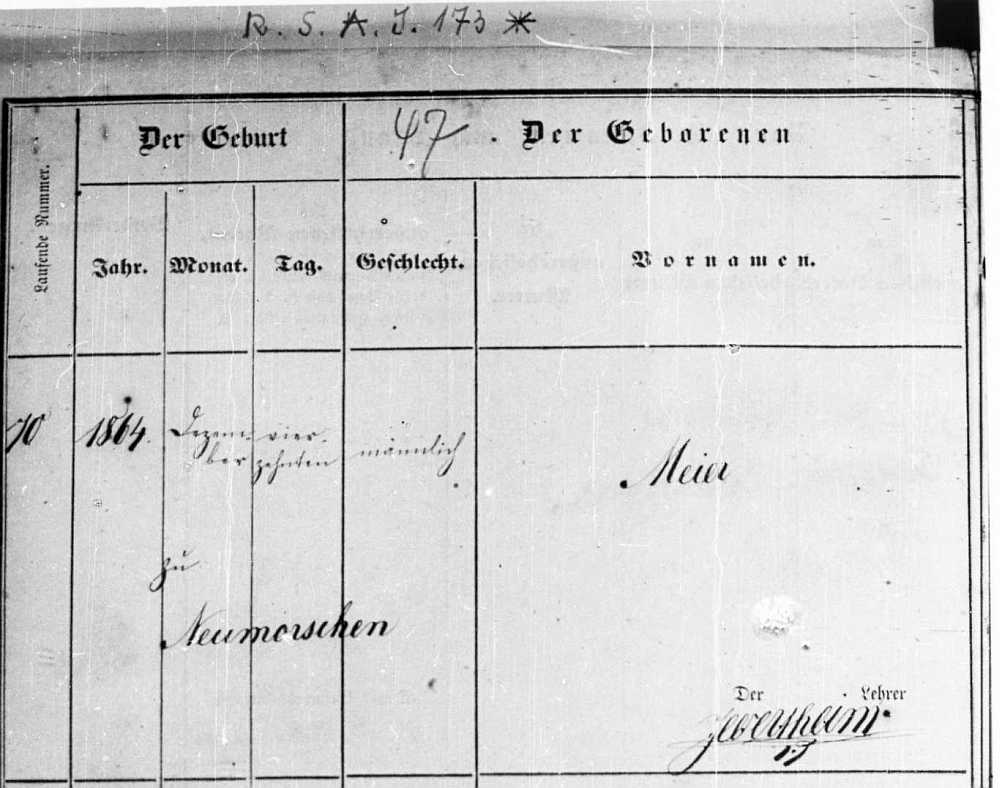 R. S. A. J. 173 *
47
Der Geburt
Der Geborenen
Laufende Nummer.
Jahr.
Monat.
Tag.
Geschlecht.
Vornamen.
70
1864.
Dezem-
ber
vier-
zehnten
männlich
Meier
zu
Neumorschen
Der Lehrer